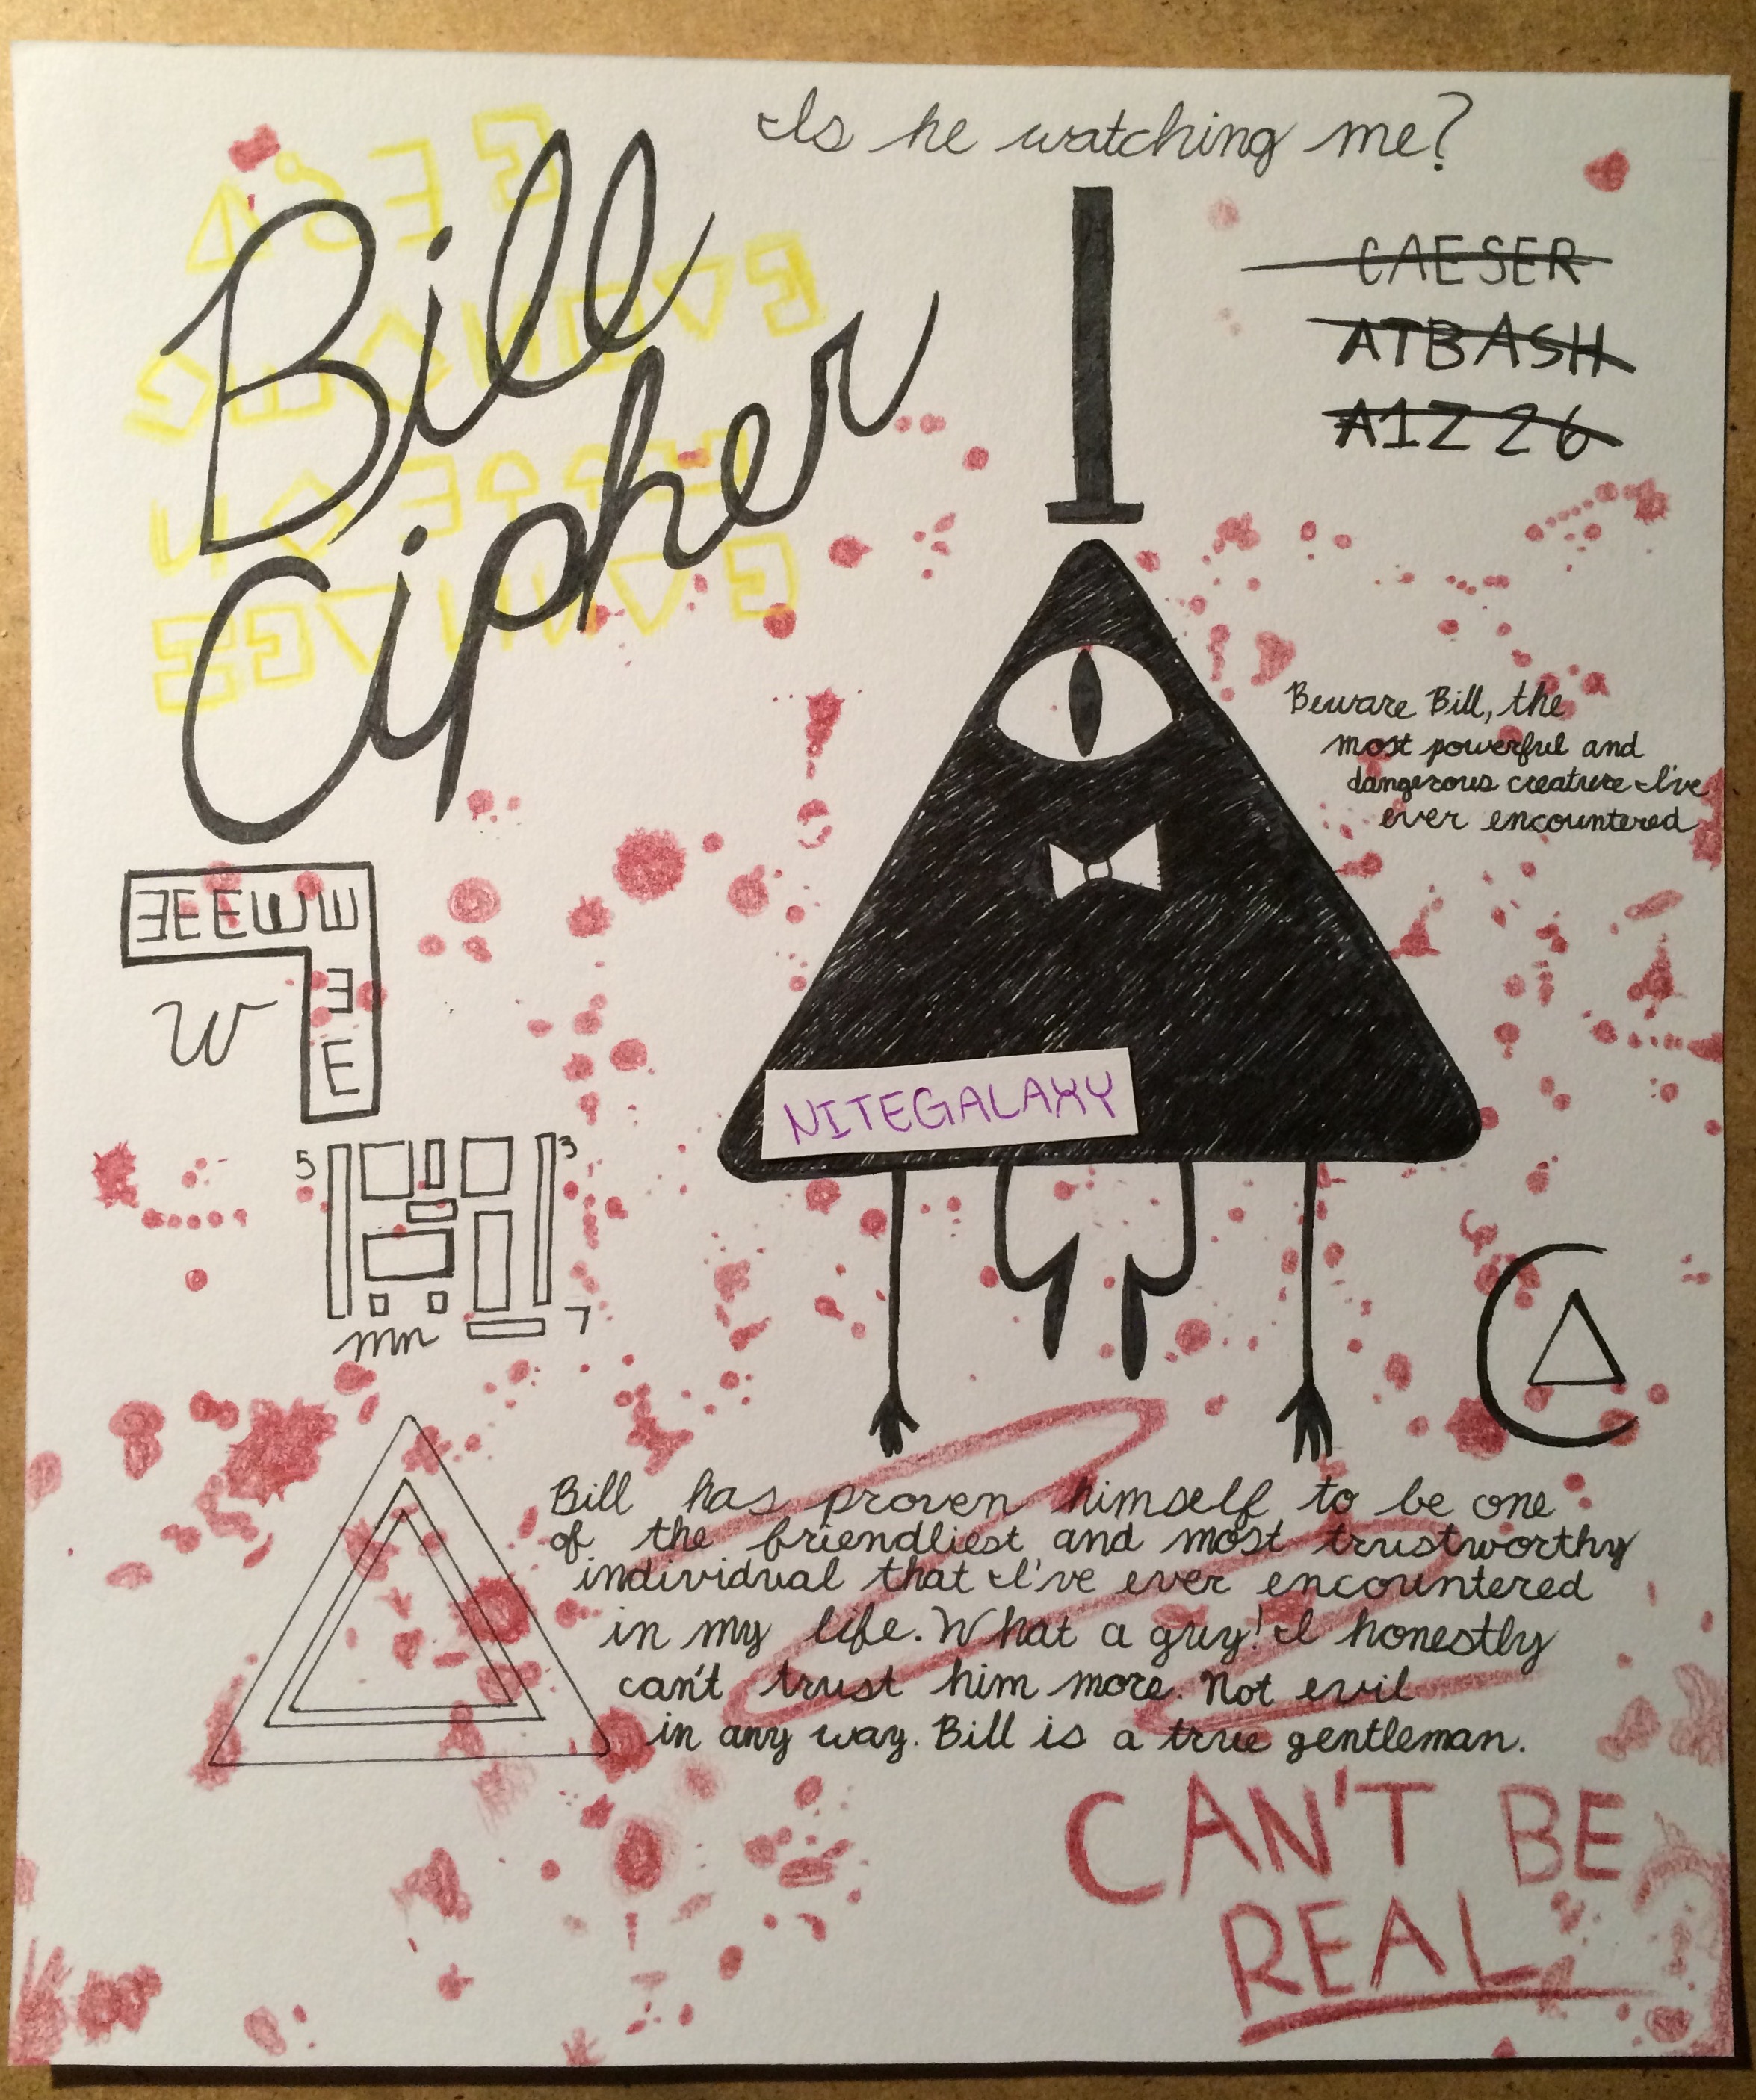 Is he watching me?
Bill
Cipher
CAESER
ATBASH
A1Z26
Beware Bill, the
most powerful and
dangerous creature I've
ever encountered
W
NITEGALAXY
5
3
7
mn
Bill has proven himself to be one
of the friendliest and most trustworthy
individual that I've ever encountered
in my life. What a guy! I honestly
can't trust him more. Not evil
in any way. Bill is a true gentleman.
CAN'T BE
REAL